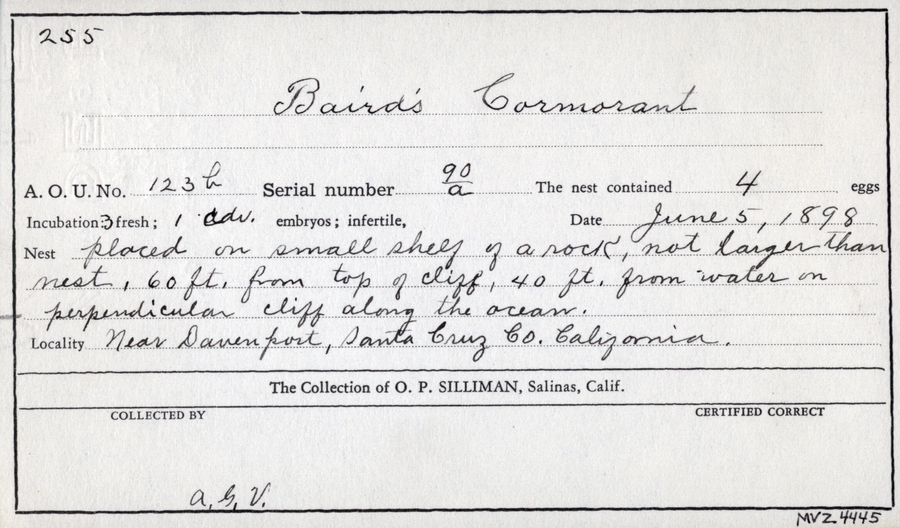 255
Baird's Cormorant
A. O. U. No. 123b Serial number 90/a The nest contained 4 eggs
Incubation: 3 fresh; 1 adv. embryos; infertile, Date June 5, 1898
Nest placed on small shelf of a rock, not larger than
nest, 60 ft. from top of cliff, 40 ft. from water on
perpendicular cliff along the ocean.
Locality Near Davenport, Santa Cruz Co. California.
The Collection of O. P. SILLIMAN, Salinas, Calif.
COLLECTED BY CERTIFIED CORRECT
a. G. V.
MVZ 4445